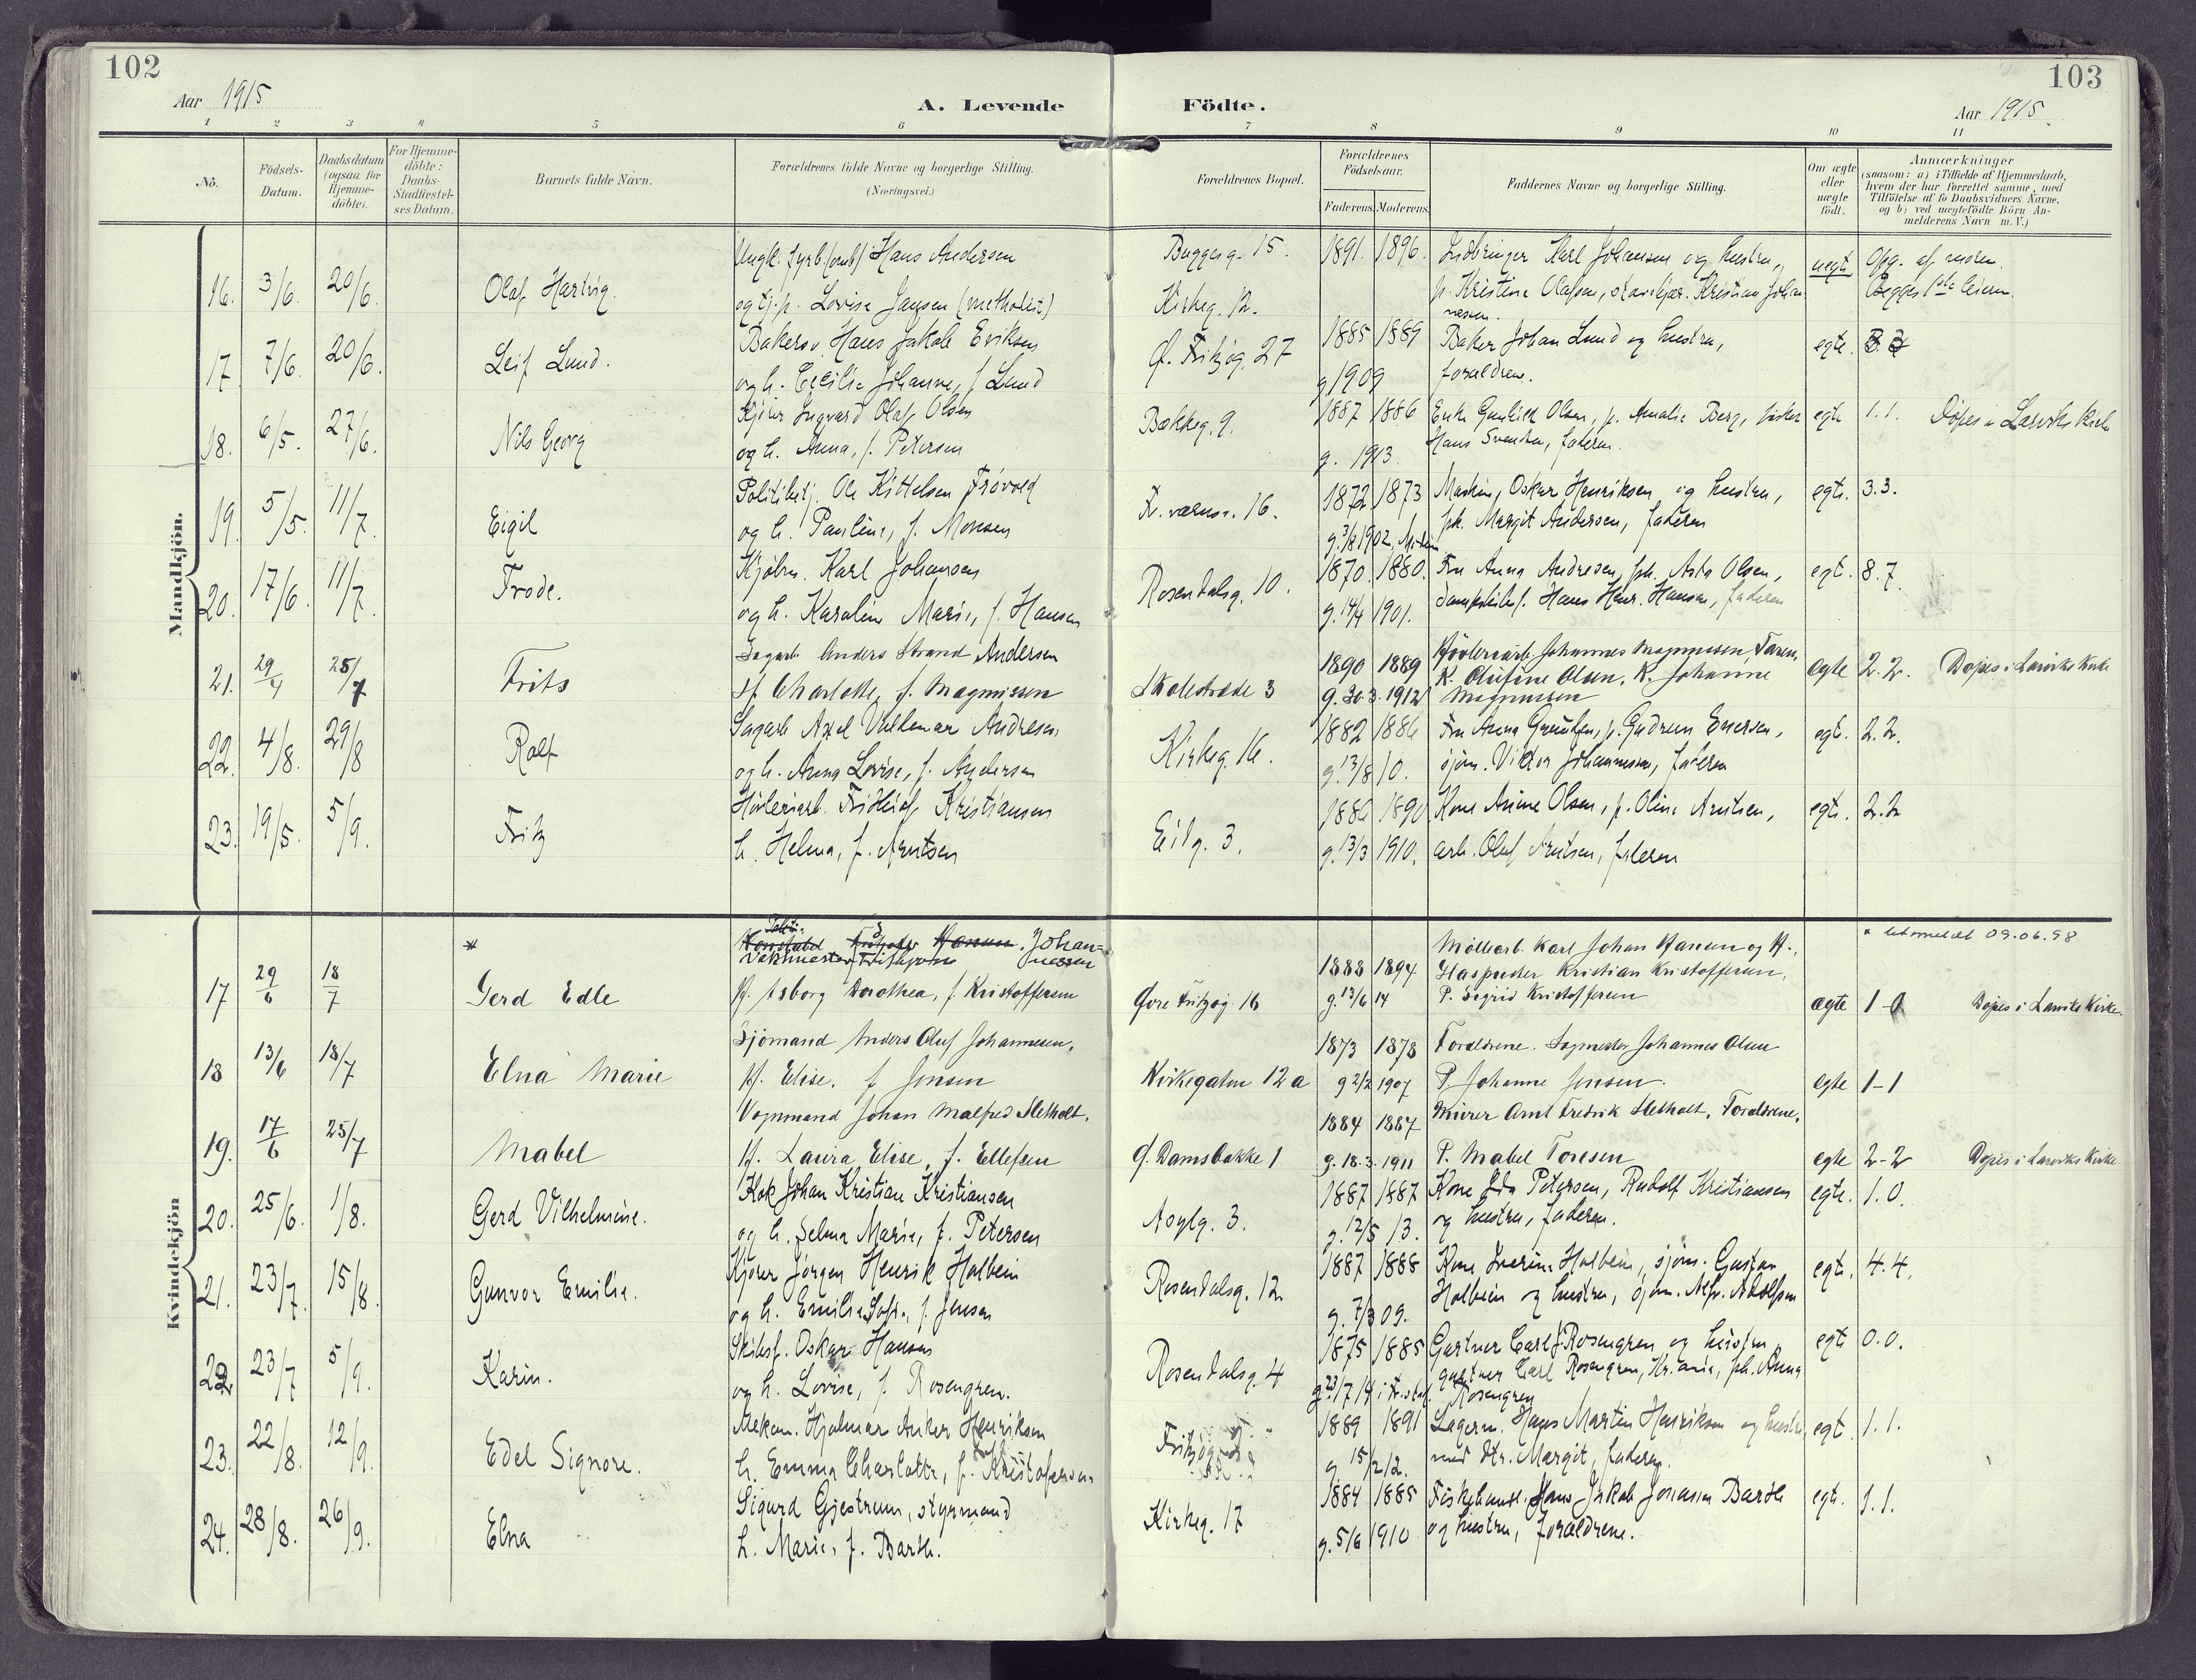 102
Aar 1915
A. Levende
1 2 3 4 5 6
No.
Födsels-Datum.
Daabsdatum (ogsaa for Hjemme-döbte).
For Hjemme-döbte: Daabs-Stadfæstel-ses Datum.
Barnets fulde Navn.
Forældrenes fulde Navne og borgerlige Stilling.
(Næringsvei.)
Födte.
103
Aar 1915.
7 8 9 10 11
Forældrenes Bopæl.
Forældrenes Födselsaar.
Faderens. Moderens.
Faddernes Navne og borgerlige Stilling.
Om ægte eller uægte födt.
Anmærkninger
(saasom: a) i Tilfælde af Hjemmedaab,
hvem der har forrettet samme, med
Tilföielse af to Daabsvidners Navne,
og b) ved uægtefödte Börn An-
melderens Navn m.V.)
Mandkjön.
Ungk. fyrb. Hans Andersen
Buggesg. 15.
1891. 1896.
Karl Johansen og hustru,
uegt.
Opg. af moren.
16. 3/6. 20/6. Olaf Hartvig.
og tj.p. Lovise Jansen (methodist)
Kirkeg. 12.
p. Kristine Olafsen, Kristian Johan
nessen.
Begges 1ste leierm.
Bakersv. Hans Jakob Eriksen
Ø. Fritzøg. 27
1885 1889
Baker Johan Lund og hustru,
egte.
17. 7/6. 20/6. Leif Lund.
og h. Cecilie Johanne, f. Lund
g. 1909
forældrene.
Kjører Ingvard Olaf Olsen
Bækkeg. 9.
1887 1886
Enke Olsen, p. Amalie Berg,
egte
1. 1.
Döpes i Larviks kirke
18. 6/5. 27/6. Nils Georg
og h. Anna, f. Petersen
g. 1913.
Hans Svendsen, faderen.
Politibetj. Ole Kittelsen Trøvold
16.
1872 1873
Maskin. Oskar Henriksen og hustru,
egte.
3. 3.
19. 5/5. 11/7. Eigil
og h. Pauline, f. Monsen
g. 3/8 1902,
pk. Margit Andersen, faderen
Kjøbm. Karl Johansen
Rosendalsg. 10.
1870. 1880.
Fru Anna Andresen, pk. Asta Olsen,
egt.
8. 7.
20. 17/6. 11/7. Frode.
og h. Karoline Marie, f. Hansen
g. 14/4 1901.
Hans Henr. Hansen, faderen
Sagarb. Anders Strand Andersen
1890 1889
Høvleriarb. Johannes Magnussen, Faren,
21. 29/4 25/7 Frits
H. Charlotte, f. Magnussen
Skolestræde 3
g. 30.3.1912
K. Olufine Olsen, K. Johanne
Magnussen
egte
2. 2.
Döpes i Larviks Kirke
Sagarb. Axel Valdemar Andresen
Kirkeg. 16.
1882 1886
Fru Anna p. Gudrun Enersen,
egt.
2. 2.
22. 4/8. 29/8 Rolf
og h. Anna Lovise, f. Andersen
g. 13/8 10.
sjøm. Viktor Johannessen, faderen
Høvleriarb. Fridthjof Kristiansen
Eilg. 3.
1886 1890
Kone Anine Olsen, p. Oline Arntsen,
egte.
2. 2.
23. 19/5. 5/9. Fritz
h. Helma, f. Arntsen
g. 13/3 1910.
arb. Oluf Arntsen, faderen
Kvindekjön
*
Konstabel Hansen. Johan=
nessen
Møllearb. Karl Johan Hansen og H.,
* utmeldt 09.06.98
17 29/6 18/7 Gerd Edle
H. Asborg Dorothea, f. Kristoffersen
Øvre Fritzøg 16
1888 1894
g. 13/6 14
Kristian Kristoffersen,
P. Sigrid Kristoffersen
ægte
1-0
Döpes i Larviks Kirke.
Sjömand Anders Oluf Johannesen,
1873 1878
Forældrene. Sagmester Johannes Olsen
18 13/6 18/7 Elna Marie
H. Elise. f Jensen
Kirkegaten 12 a
g 2/2 1907
P. Johanne Jensen.
egte
1-1
Vognmand Johan Malfred Sletholt.
1884 1887
Murer Arnt Fredrik Sletholt, Forældrene.
19. 17/6 25/7 Mabel
H. Laura Elise, f. Ellefsen
Ø. Damsbakke 1
g. 18.3.1911
P. Mabel Toresen
egte
2-2
Döpes i Larviks Kirke
Kok Johan Kristian Kristiansen
1887 1887
Kone Ida Petersen, Rudolf Kristiansen
egte.
1. 0.
20. 25/6. 1/8. Gerd Vilhelmine.
og h. Selma Marie, f. Petersen
Asylg. 3.
g. 12/5 13.
og hustru, faderen.
Kjører Jørgen Henrik Holbein
1887 1888
Kone Severine Holbein, sjøm. Gustav
egte.
4. 4.
21. 23/7. 15/8. Gunvor Emilie.
og h. Emilie Sofie, f. Jensen
Rosendalsg. 12
g. 7/3 09.
Holbein og hustru, sjøm. Alfr. Adolfsen
Skibsf. Oskar Hansen
1875 1885
Gartner Carl J. Rosengren og hustru,
egte
0. 0.
22. 23/7 5/9. Karin.
og h. Lovise, f. Rosengren.
Rosendalsg. 4
gartner Carl Rosengren, Kr.ania, pk. Anna
Rosengren
Mekan. Hjalmar Anker Henriksen
1889 1891
Lagerm. Hans Martin Henriksen og hustru
egt.
1. 1.
23. 22/8. 12/9. Edel Signore.
h. Emma Charlotte, f. Kristofersen
g 15/2 12.
med dtr. Margit, faderen.
Sigurd Gjestrum, styrmand
1884 1885
Hans Jakob Jonassen Barth
egte.
1. 1.
24. 28/8. 26/9. Elna
h. Marie, f. Barth.
Kirkeg. 17
g. 5/6 1910
og hustru, forældrene.